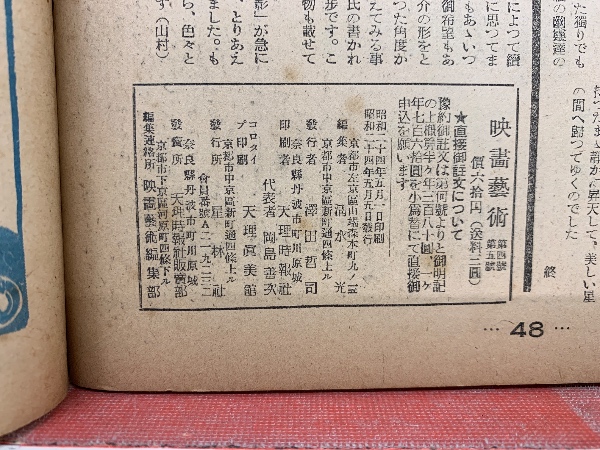 獨りでも
によつて續
に思つてま
もあゝいつ
御希望もあ
介の形をと
つた角度か
えてみる事
氏の書かれ
步です。こ
物も載せて
影」が急に
、とりあえ
ました。も
ら、色々と
す（山村）
昇天して、美しい星
の間へ歸つてゆくのでした
終
映畫藝術 第四卷 第五號
價六拾円（送料三圓）
★直接御註文について
豫約御註文は第何號よりと御明記
の上概算半ヶ年三百八十圓、一ヶ
年七百六拾圓を小爲替にて直接御
申込を願います
昭和二十四年五月一日印刷
昭和二十四年五月五日發行
京都市左京區山端森本町九ノ三
編集者 清水光
京都市中京區新町通四條上ル
發行者 澤田哲司
奈良縣丹波市町川原城
印刷者 天理時報社
代表者 岡島善次
コロタイプ印刷 天理眞美館
京都市中京區新町通四條上ル
發行所 星林社
會員番號A二一九二三二
奈良縣丹波市町川原城
發賣所 天理時報社販賣部
京都市下京區河原町四條下ル
編集連絡所 映畫藝術編集部
… 48 …